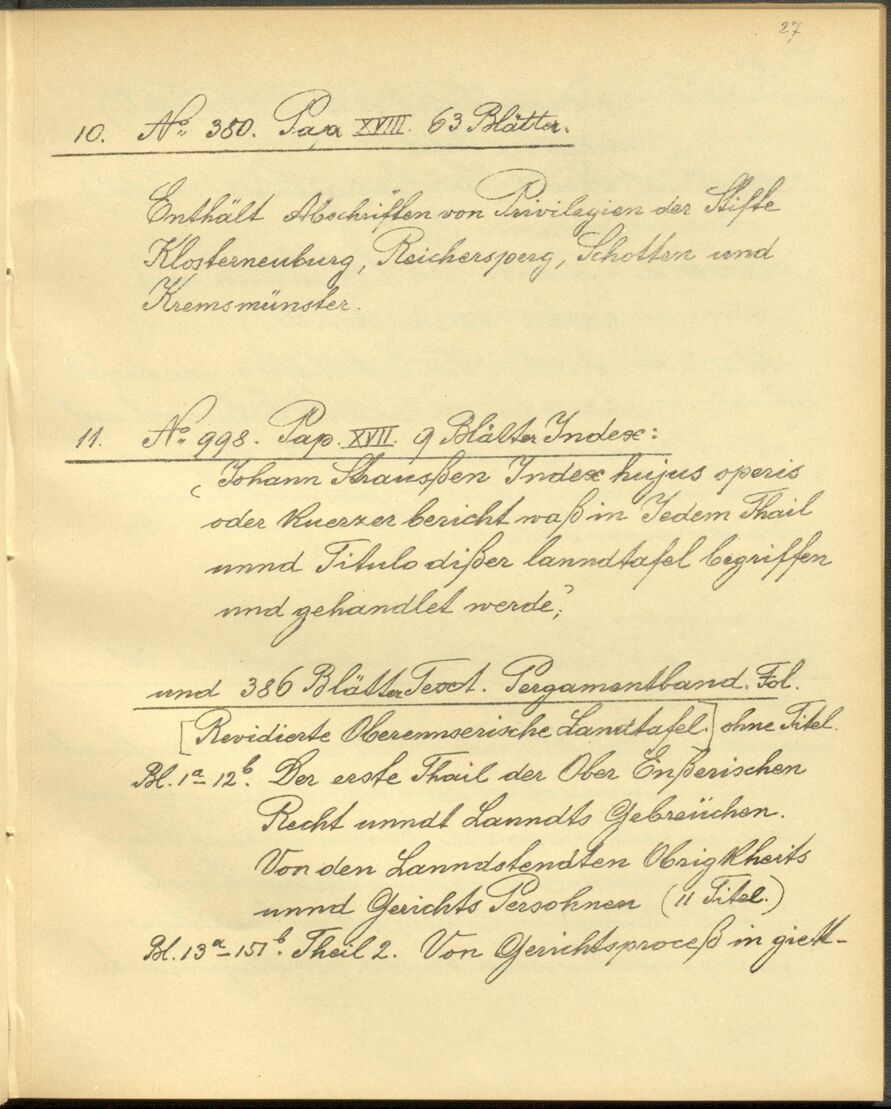 27
10. No. 380. Pap. XVIII. 63 Blätter.
Enthält Abschriften von Privilegien der Stifte
Klosterneuburg, Reichersperg, Schotten und
Kremsmünster.
11. No. 998. Pap. XVII. 9 Blätter Index:
„Johann Straußßen Index hujus operis
oder kuerzer bericht waß in Jedem Thail
unnd Titulo dißer lanndtafel begriffen
und gehandlet werde";
und 386 Blätter Text. Pergamentband. Fol.
[Revidierte Oberennserische Landtafel.] ohne Titel.
Bl. 1a–12b. Der erste Thail der Ober Enßerischen
Recht unndt Lanndts Gebreüchen.
Von den Lanndstendten Obrigkheits
unnd Gerichts Persohnen (11 Titel.)
Bl. 13a–151b. Theil 2. Von Gerichtsproceß in giett-